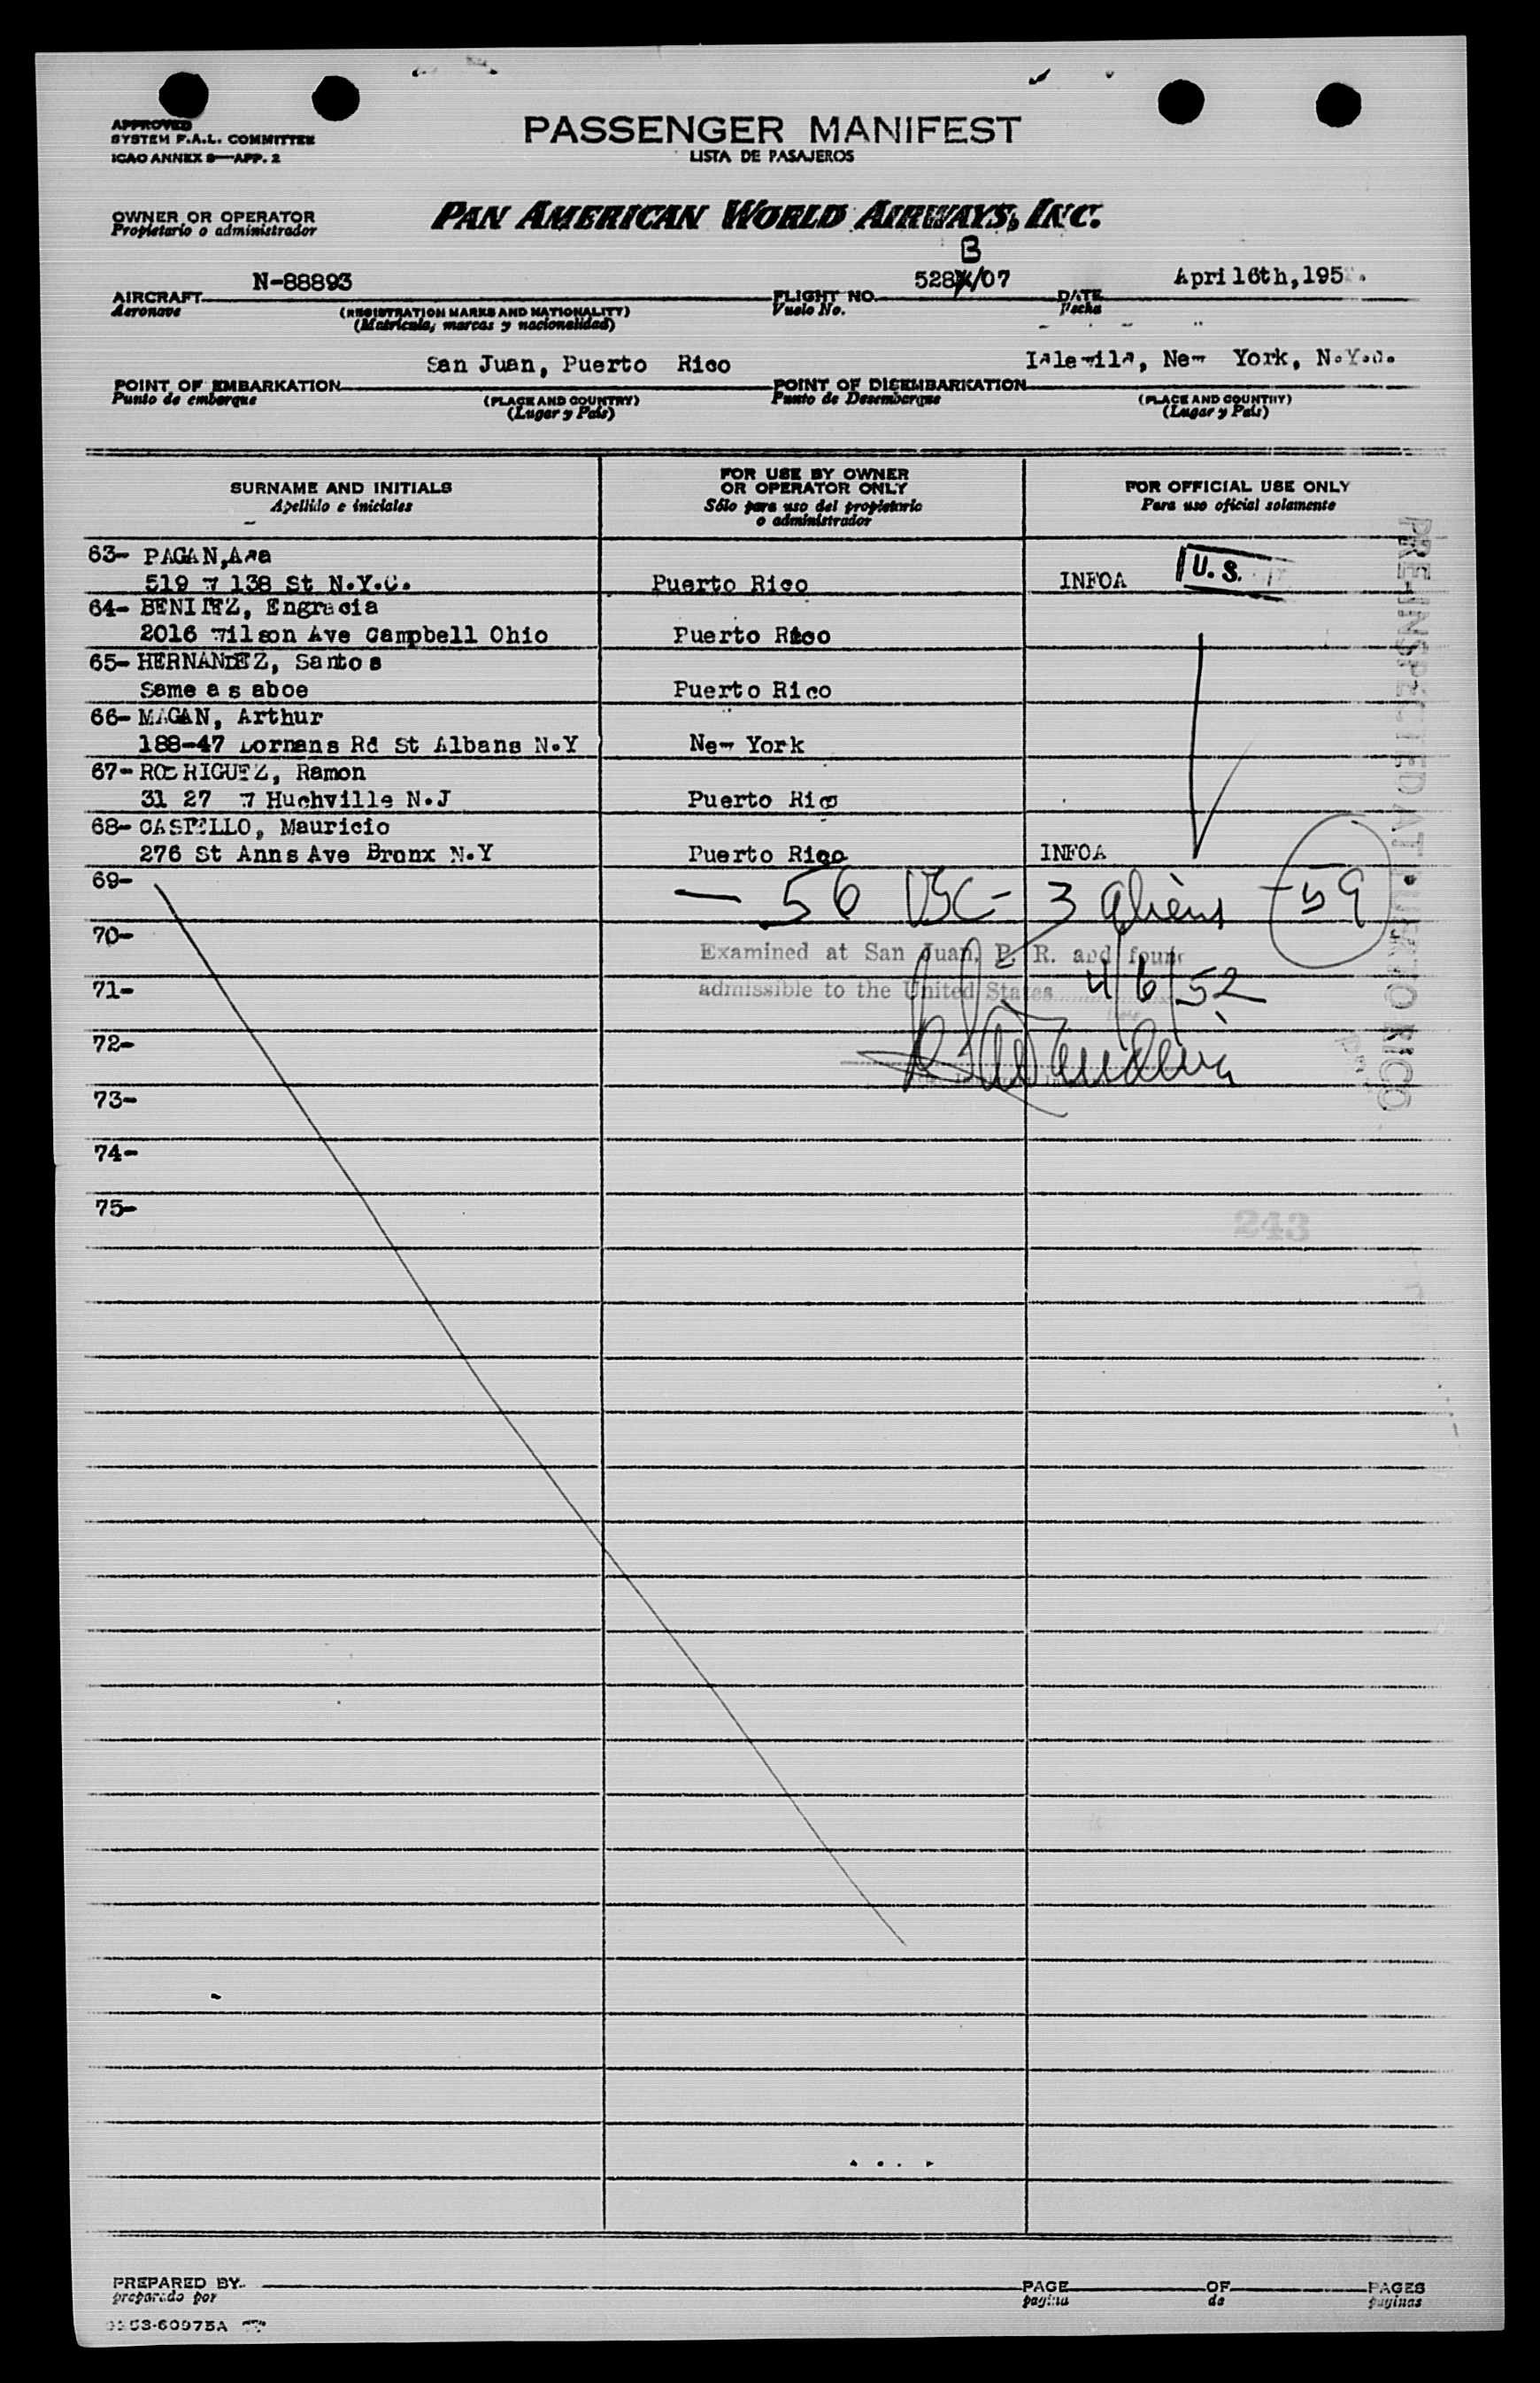 APPROVED
SYSTEM F.A.L. COMMITTEE
ICAO ANNEX 9—APP. 2
PASSENGER MANIFEST
LISTA DE PASAJEROS
OWNER OR OPERATOR
Propietario o administrador
PAN AMERICAN WORLD AIRWAYS, INC.
B
N-88893 528/07 April 6th, 195
AIRCRAFT FLIGHT NO. DATE
Aeronave (REGISTRATION MARKS AND NATIONALITY) Vuelo No. Fecha
(Matrícula, marcas y nacionalidad)
San Juan, Puerto Rico Idlewild, New York, N.Y.C.
POINT OF EMBARKATION POINT OF DISEMBARKATION
Punto de embarque (PLACE AND COUNTRY) Punto de Desembarque (PLACE AND COUNTRY)
(Lugar y País) (Lugar y País)
SURNAME AND INITIALS FOR USE BY OWNER OR OPERATOR ONLY FOR OFFICIAL USE ONLY
Apellido e iniciales Sólo para uso del propietario o administrador Para uso oficial solamente
63- PAGAN, Ada
519 W 138 St N.Y.C. Puerto Rico INFOA U.S.
64- BENITEZ, Engracia
2016 Wilson Ave Campbell Ohio Puerto Rico
65- HERNANDEZ, Santos
Same as aboe Puerto Rico
66- MAGAN, Arthur
188-47 Lornans Rd St Albans N.Y New York
67- RODRIGUEZ, Ramon
31 27 W Huchville N.J Puerto Rico
68- CASTELLO, Mauricio
276 St Anns Ave Bronx N.Y Puerto Rico INFOA
69- — 56 USC - 3 aliens - 59
70- Examined at San Juan, P. R. and found
71- admissible to the United States 4/6/52
72-
73-
74-
75-
243
PRE-INSPECTED AT PUERTO RICO
PREPARED BY PAGE OF PAGES
preparado por pagina de paginas
60975A